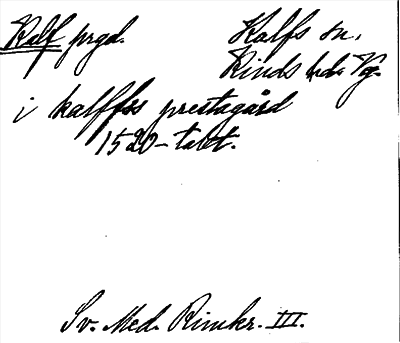 Kalf prgd.
Kalfs sn.
Kinds hd. Vg.
i kalffss prestagård
1520-talet.
Sv. Med. Rimkr. III.